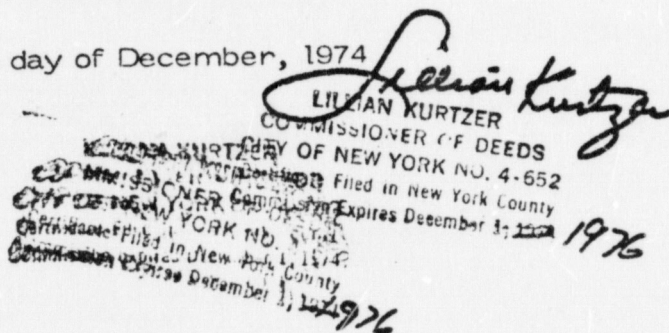 day of December, 1974
Lillian Kurtzer
LILLIAN KURTZER
COMMISSIONER OF DEEDS
CITY OF NEW YORK NO. 4-652
Filed in New York County
Commission Expires December 1, 1976
KURTZER
COMMISSIONER
CITY OF NEW YORK NO.
Certificate Filed in New York County
Commission Expires December 1, 1976